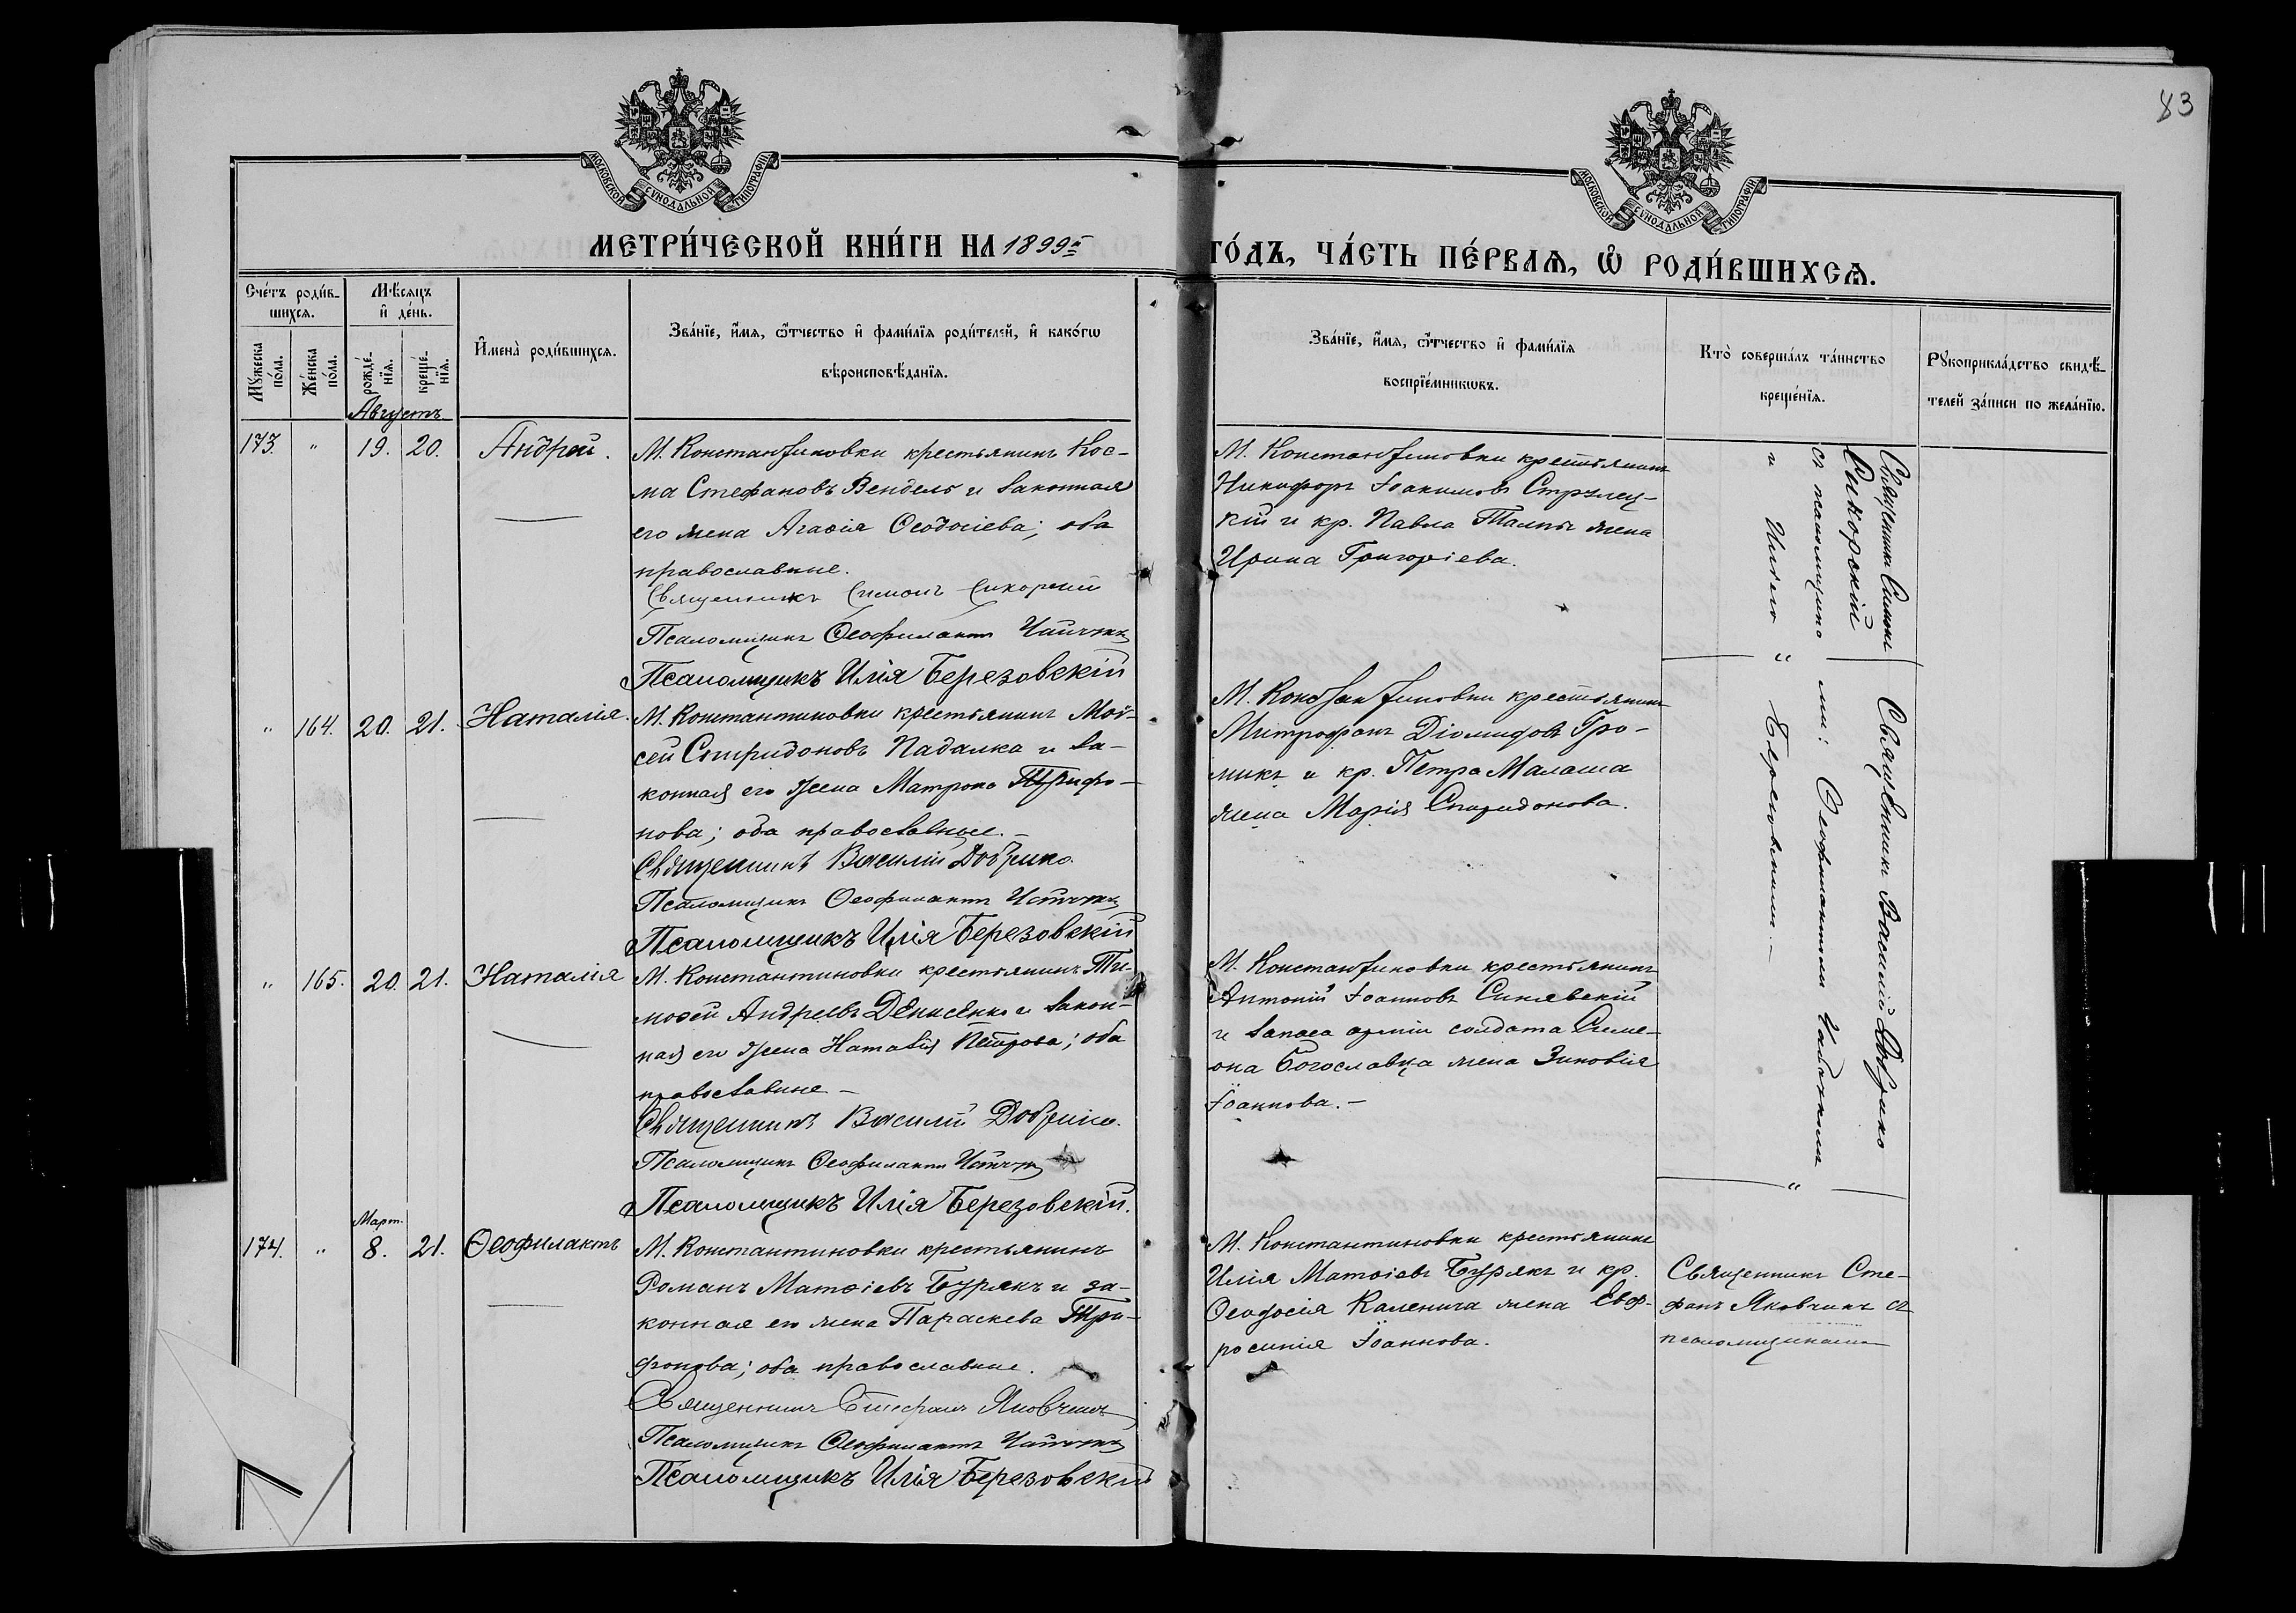 83
МОСКОВСКОЙ СУНОДАЛЬНОЙ ТИПОГРАФІИ
МОСКОВСКОЙ СУНОДАЛЬНОЙ ТИПОГРАФІИ
МЕТРИ́ЧЕСКОЙ КНИ́ГИ НА 1899й
ГО́ДЪ, ЧА́СТЬ ПЕ́РВАѦ, Ѡ РОДИ́ВШИХСѦ.
Сче́тъ роди́в-
шихсѧ.
Мꙋ́жеска
по́ла.
Же́нска
по́ла.
Мѣ́сѧцъ
и҆ де́нь.
рожде́-
нїѧ.
креще́-
нїѧ.
И҆мена̀ роди́вшихсѧ.
Зва́нїе, и҆́мѧ, ѻ҆́тчество и҆ фами́лїѧ роди́телей, и҆ како́гѡ
вѣроисповѣ́данїѧ.
Зва́нїе, и҆́мѧ, ѻ҆́тчество и҆ фами́лїѧ
воспрїе́мникѡвъ.
Кто̀ соверша́лъ та́инство
креще́нїѧ.
Рꙋкоприкла́дство свидѣ́-
телей за́писи по жела́нїю.
Августъ
173. " 19. 20. Андрей.
М. Константиновки крестьянинъ Кос-
ма Стефановъ Вендель и законная
его жена Агаѳія Ѳеодосіева; оба
православные.
Священникъ Симонъ Сикорскій
Псаломщикъ Ѳеофилактъ
Псаломщикъ Илія Березовскій
М. Константиновки крестьянинъ
Никифоръ Іоакимовъ Стрѣлец-
кій и кр. Павла жена
Ирина Григоріева.
Священникъ Симонъ
Сикорскій
съ псаломщиками: Ѳеофилактомъ
и Иліею Березовскимъ.—
" 164. 20. 21. Наталія.
М. Константиновки крестьянинъ Мой-
сей Спиридоновъ Падалка и за-
конная его жена Матрона Трифо-
нова; оба православные.—
Священникъ Василій
Псаломщикъ Ѳеофилактъ
Псаломщикъ Илія Березовскій
М. Константиновки крестьянинъ
Митрофанъ Діомидовъ Гро-
микъ и кр. Петра Малаша
жена Марія Спиридонова.
Священникъ Василій
" 165. 20. 21. Наталія
М. Константиновки крестьянинъ Ти-
моѳей Андреевъ Денисенко и закон-
ная его жена Наталія Петрова; оба
православные—
Священникъ Василій
Псаломщикъ Ѳеофилактъ
Псаломщикъ Илія Березовскій.
М. Константиновки крестьянинъ
Антоній Іоанновъ Синявскій
и запаса арміи солдата Симе-
она Богославца жена Зиновія
Іоаннова.—
Март.
174. " 8. 21. Ѳеофилактъ
М. Константиновки крестьянинъ
Романъ Матѳіевъ Бурякъ и за-
конная его жена Параскева Три-
фонова; оба православные.
Священникъ Стефанъ Яковчикъ
Псаломщикъ Ѳеофилактъ
Псаломщикъ Илія Березовскій
М. Константиновки крестьянинъ
Илія Матѳіевъ Бурякъ и кр.
Ѳеодосія Каленича жена Евф-
росинія Іоаннова.
Священникъ Сте-
фанъ Яковчикъ съ
псаломщиками